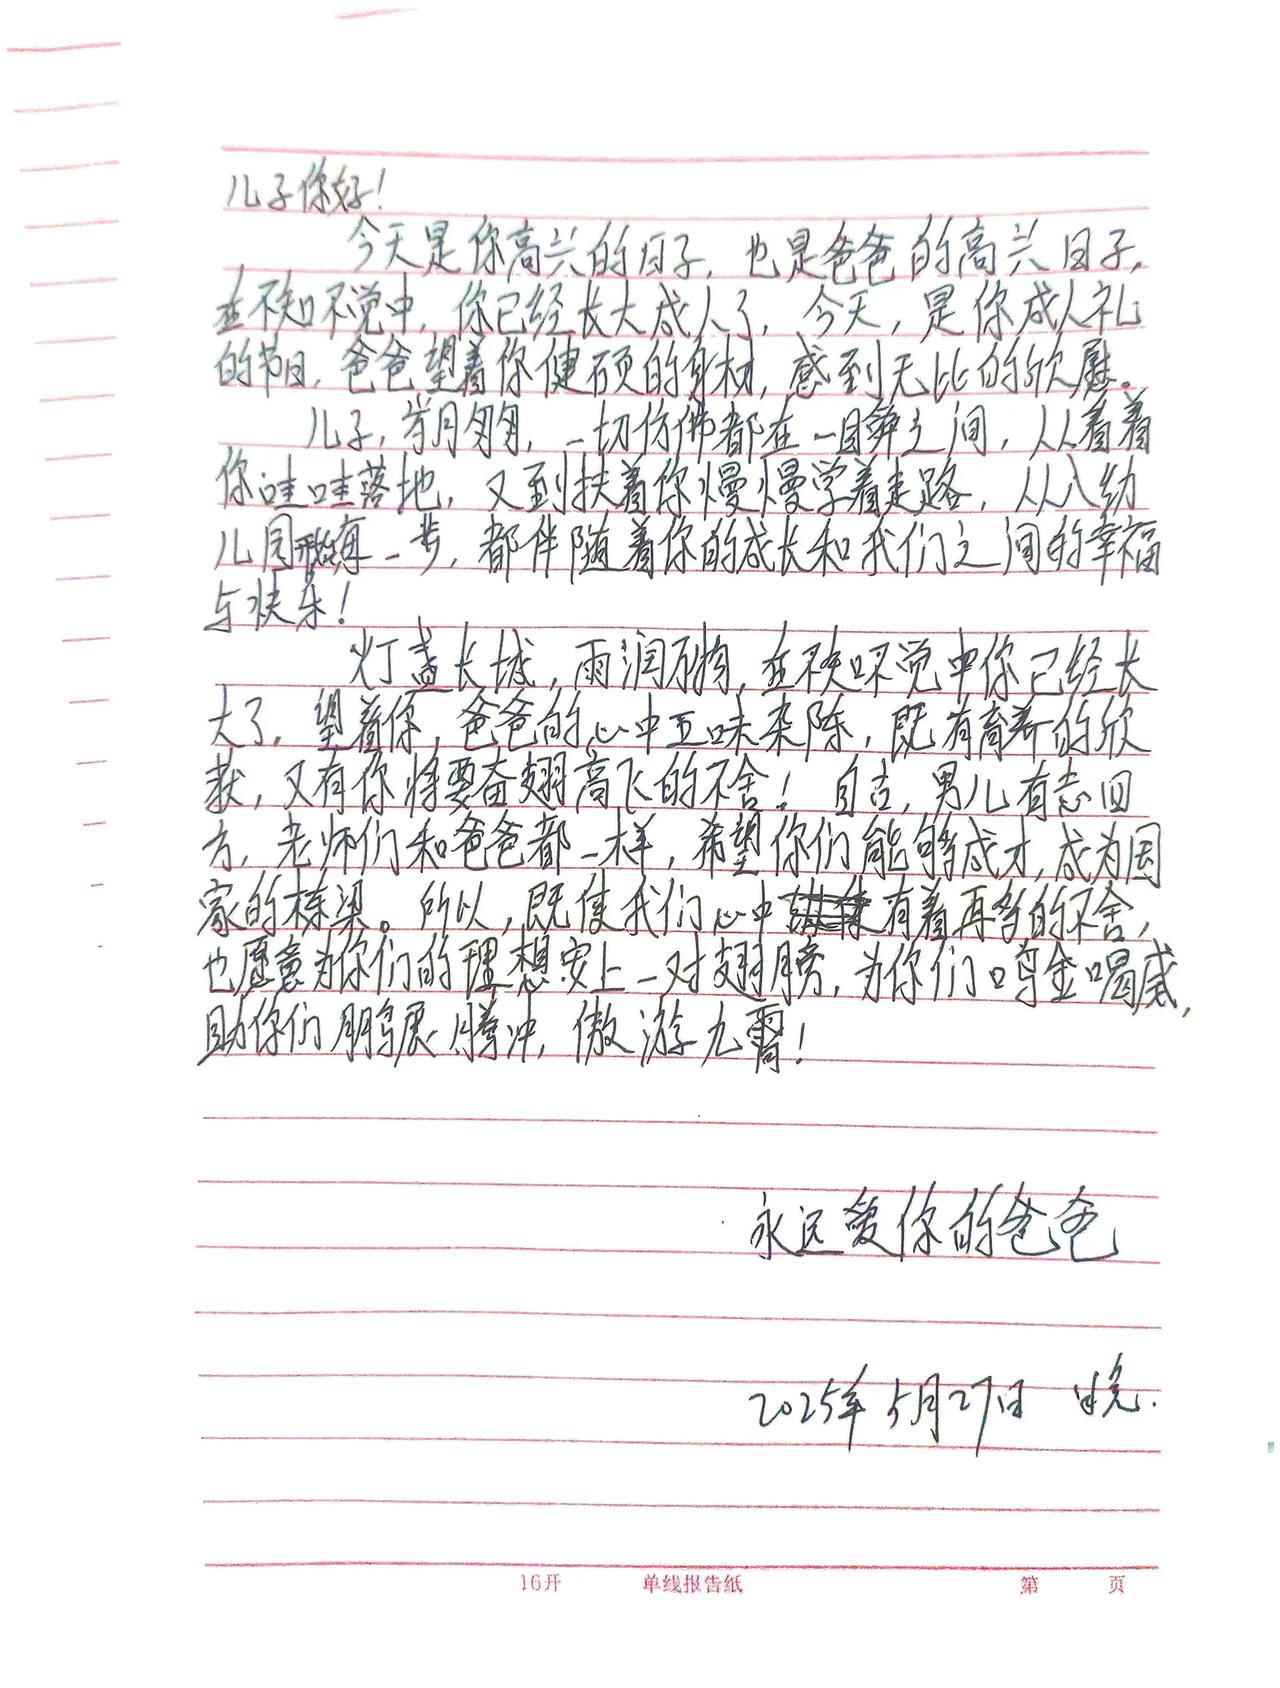 儿子你好!
今天是你高兴的日子,也是爸爸的高兴日子,
在不知不觉中,你已经长大成人了,今天,是你成人礼
的节日,爸爸望着你健硕的身材,感到无比的欣慰。
儿子,岁月匆匆,一切仿佛都在一目瞬之间,从看着
你哇哇落地,又到扶着你慢慢学着走路,从入幼
儿园 每一步,都伴随着你的成长和我们之间的幸福
与快乐!
灯盏长城,雨润万物,在不知不觉中你已经长
大了,望着你,爸爸的心中五味杂陈,既有育养的欣
获,又有你将要奋翅高飞的不舍!自古,男儿有志四
方,老师们和爸爸都一样,希望你们能够成才,成为国
家的栋梁。所以,既使我们心中有着再多的不舍,
也愿意为你们的理想安上一对翅膀,为你们鸣金喝威,
助你们鹏展腾冲,傲游九霄!
永远爱你的爸爸
2025年5月27日 晚.
16开 单线报告纸 第 页